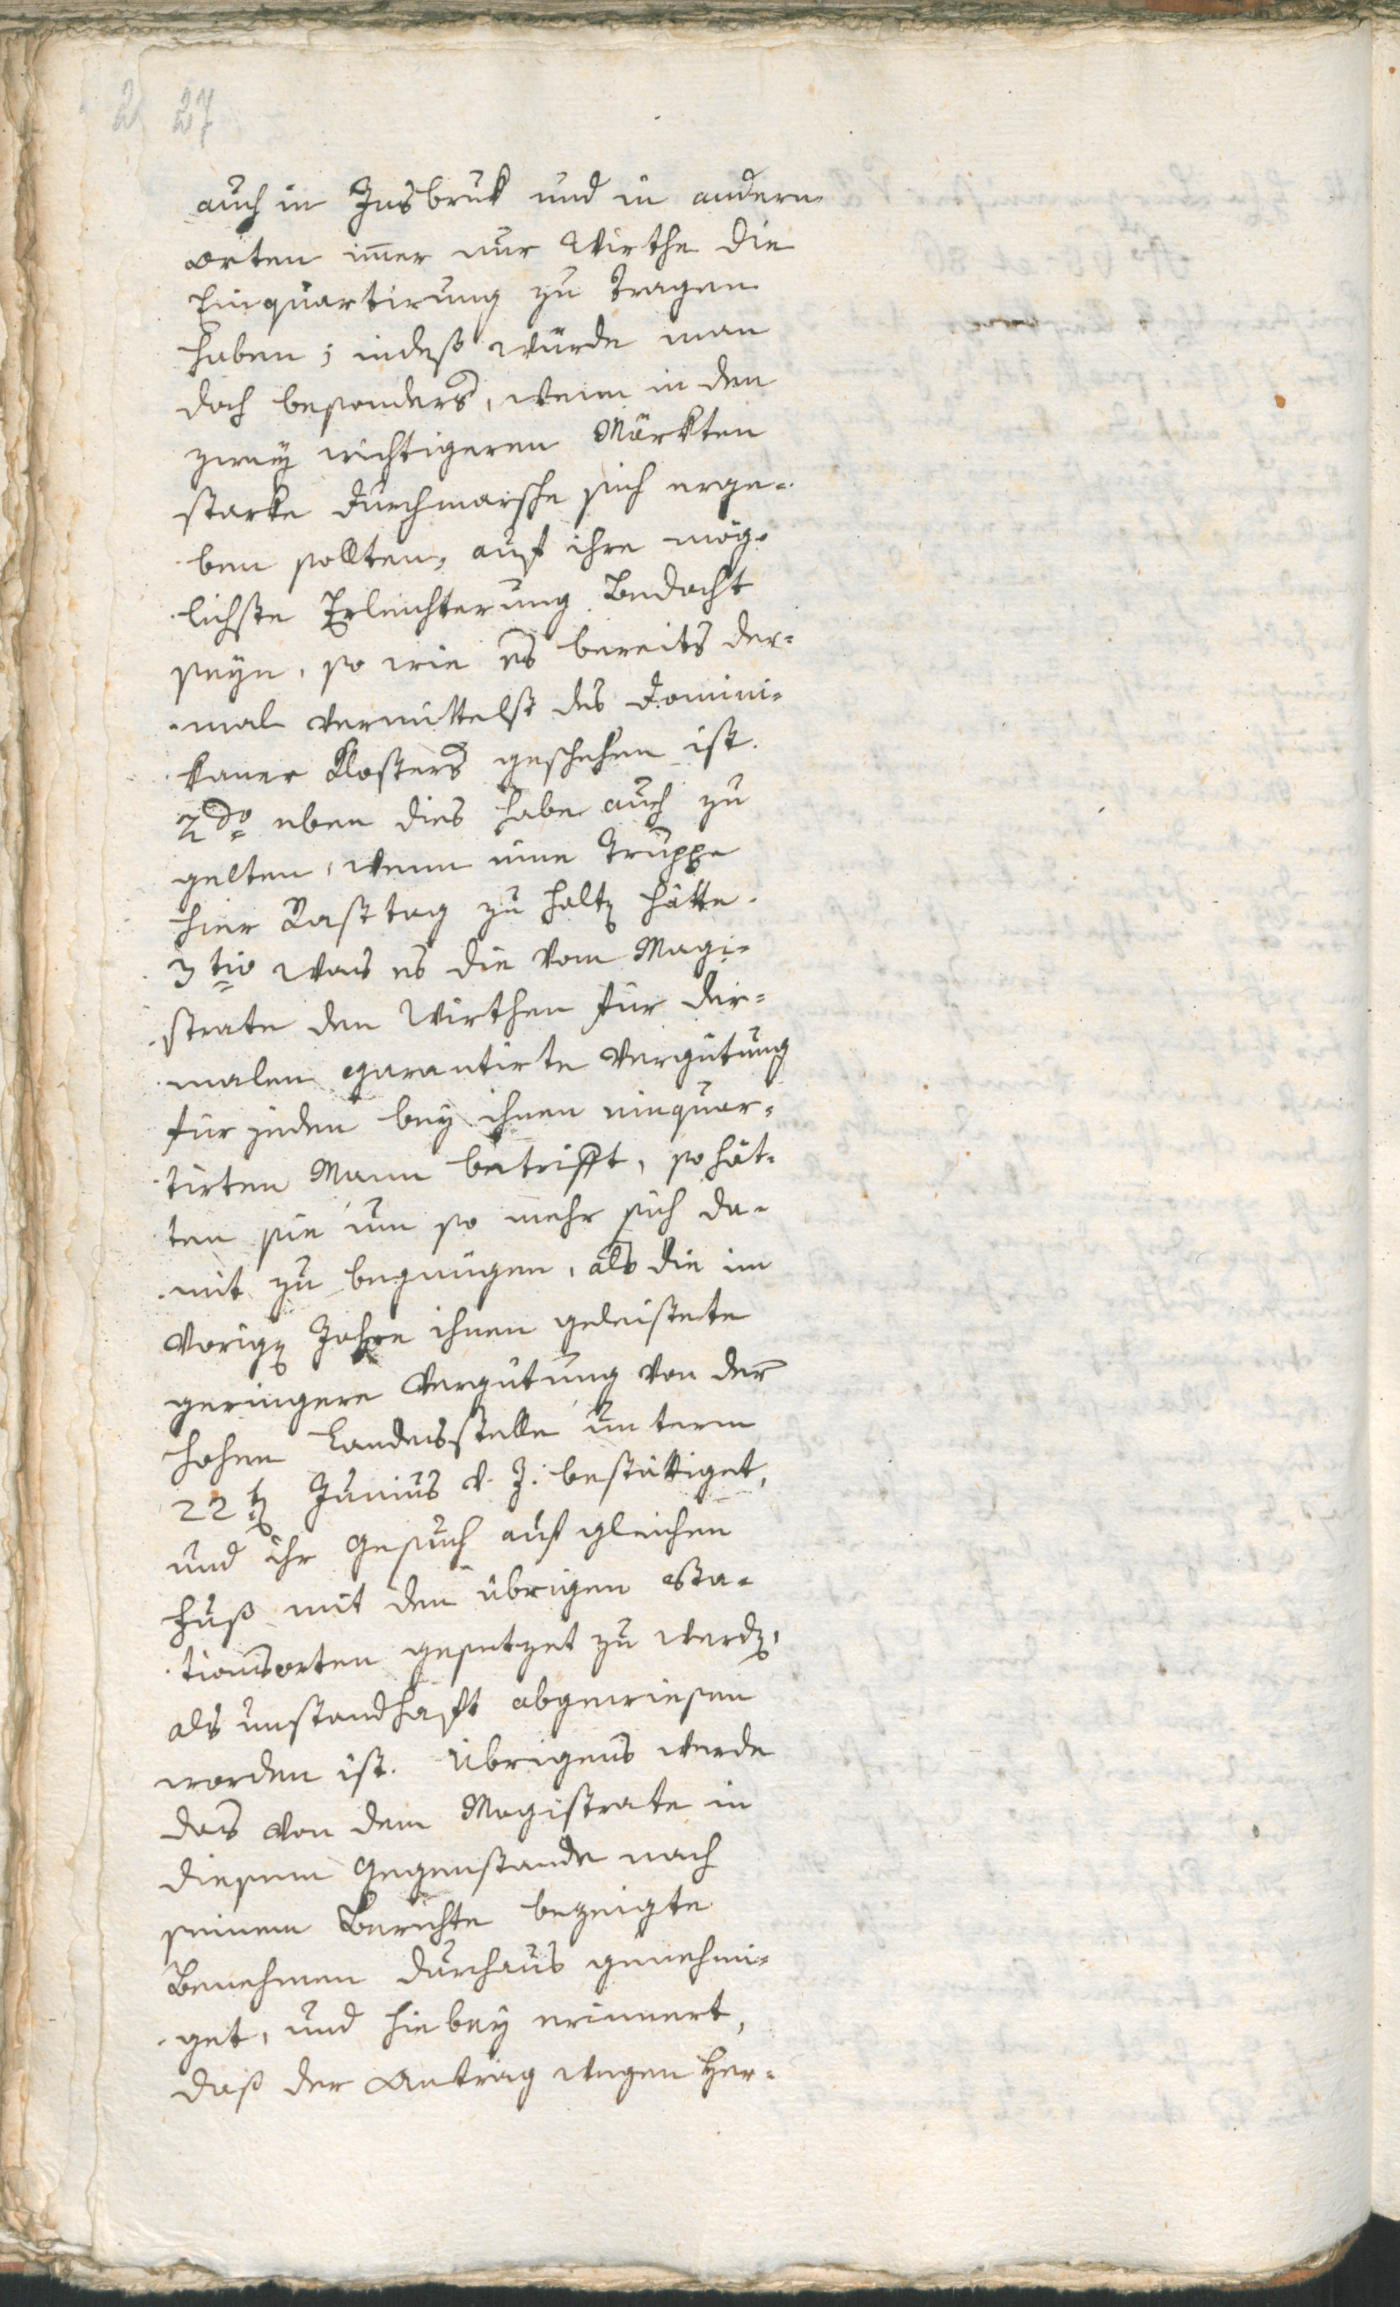 27
auch in Insbruk und in andern
Orten im̅er nur Wirthe die
Einquartirung zu tragen
haben; indeß würde man
doch besonders, wenn in den
zwey wichtigeren Märkten
starke Durchmärsche sich erge-
ben sollten, auf ihre mög-
lichste Erleichterung Bedacht
seyn, so wie es bereits der-
mal vermittelst des Domini-
kaner Klosters geschehen ist.
2do eben dies habe auch zu
gelten, wenn eine Truppe
hier Rasttag zu halten hätte.
3tio was es die vom Magi-
strate den Wirthen für der-
malen garantirte Vergütung
für jeden bey ihnen einquar-
tirten Mann betrifft, so hät-
ten sie um so mehr sich da-
mit zu begnügen, als die im
vorigen Jahre ihnen geleistete
geringere Vergütung von der
hohen Landesstelle unterm
22ten Junius v. J. bestättiget,
und ihr Gesuch auf gleichen
Fuß mit den übrigen Sta-
tionsorten gesetzet zu werden,
als unstandhaft abgewiesen
worden ist. Übrigens werde
das von dem Magistrate in
diesem Gegenstande nach
seinem Berichte bezeigte
Benehmen durchaus genehmi-
get, und hiebey erinnert,
daß der Antrag wegen Her-